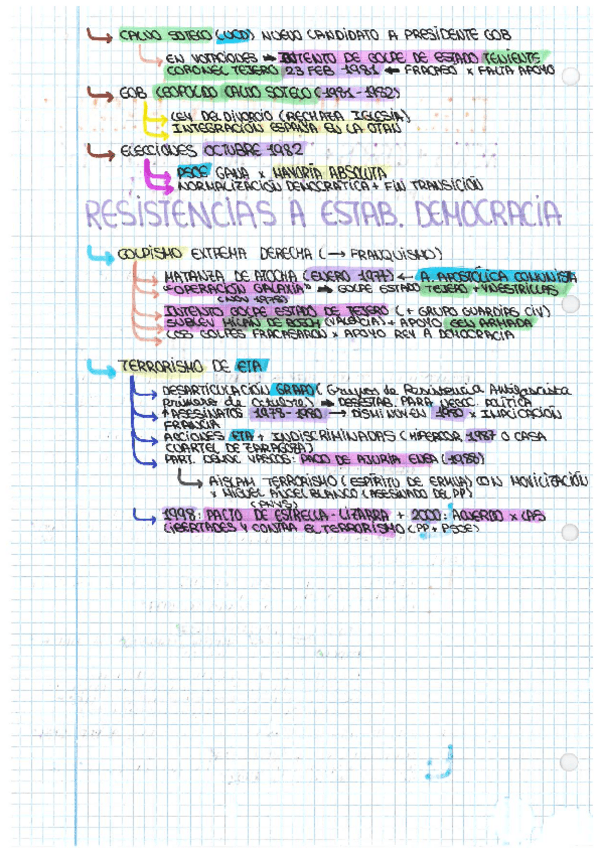 CALVO SOTELO (UCD) NUEVO CANDIDATO A PRESIDENTE GOB
EN VOTACIONES → INTENTO DE GOLPE DE ESTADO TENIENTE
CORONEL TEJERO 23 FEB 1981 ← FRACASO x FALTA APOYO
GOB LEOPOLDO CALVO SOTELO (1981-1982)
LEY DEL DIVORCIO (RECHAZA IGLESIA)
INTEGRACIÓN ESPAÑA EN LA OTAN
ELECCIONES OCTUBRE 1982
PSOE GANA x MAYORÍA ABSOLUTA
NORMALIZACIÓN DEMOCRÁTICA + FIN TRANSICIÓN
RESISTENCIAS A ESTAB. DEMOCRACIA
GOLPISMO EXTREMA DERECHA (→ FRANQUISMO)
MATANZA DE ATOCHA (ENERO 1977) ← A. APOSTÓLICA COMUNISTA
"OPERACIÓN GALAXIA" → GOLPE ESTADO TEJERO + YNESTRILLAS
(NOV 1978)
INTENTO GOLPE ESTADO DE TEJERO (+ GRUPO GUARDIAS CIV)
SUBLEV MILÁN DE BOSCH (VALENCIA) + APOYO GEN ARMADA
LOS GOLPES FRACASARON x APOYO REY A DEMOCRACIA
TERRORISMO DE ETA
DESARTICULACIÓN GRAPO (Grupos de Resistencia Antifascista
primero de Octubre) → DESESTAB. PARA DESC. POLÍTICA
+ASESINATOS 1978-1980 → DISMINUYEN 1980 x IMPLICACIÓN
FRANCIA
ACCIONES ETA + INDISCRIMINADAS (HIPERCOR 1987 O CASA
CUARTEL DE ZARAGOZA)
PART. DEMOC VASCOS: PACTO DE AJURIA ENEA (1988)
AISLAM TERRORISMO (ESPÍRITU DE ERMUA) CON MOVILIZACIÓN
x MIGUEL ÁNGEL BLANCO (ASESINADO DEL PP)
(PNV)
1998: PACTO DE ESTRELLA-LIZARRA + 2000: ACUERDO x LAS
LIBERTADES Y CONTRA EL TERRORISMO (PP + PSOE)